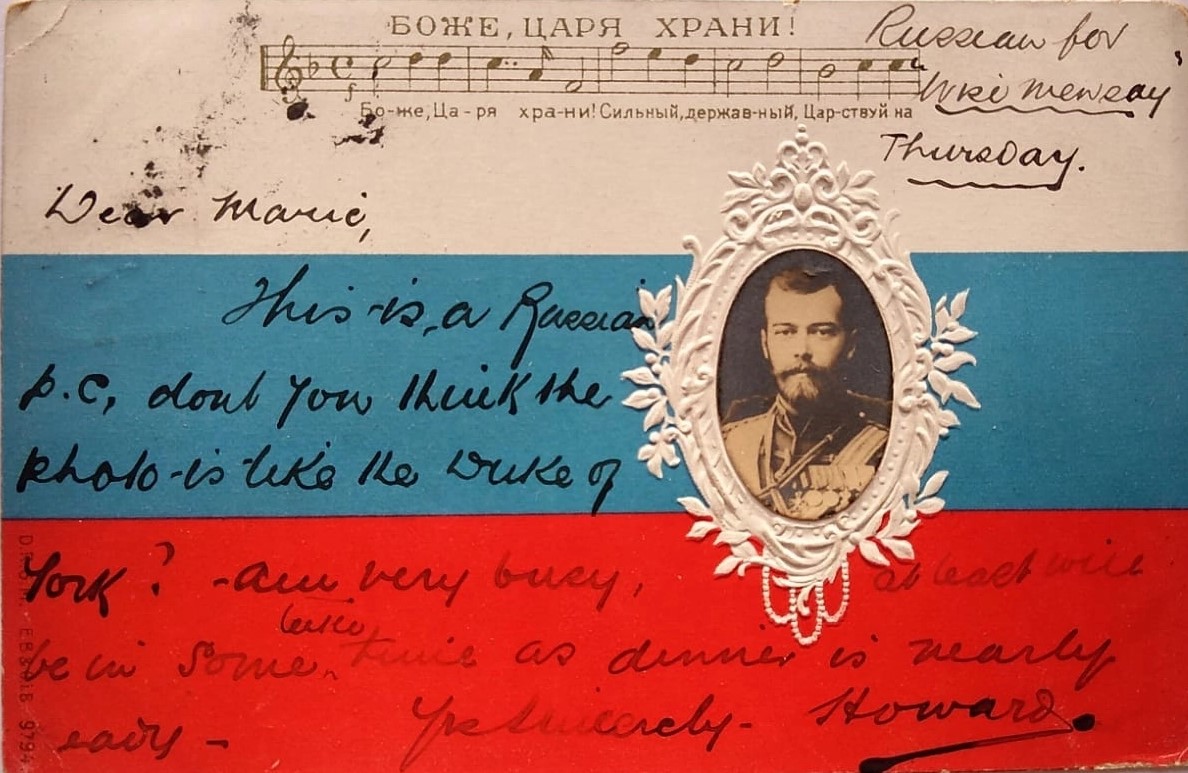 БОЖЕ, ЦАРЯ ХРАНИ!
Бо-же, Ца-ря хра-ни! Сильный, держав-ный, Цар-ствуй на
Russian for
Thursday.
Dear Marie,
This is a Russian
p.c, dont you think the
photo is like the Duke of
York? - am very busy, at least will
be in some time as dinner is nearly
eady -
Yrs Sincerely - Howard.
9794